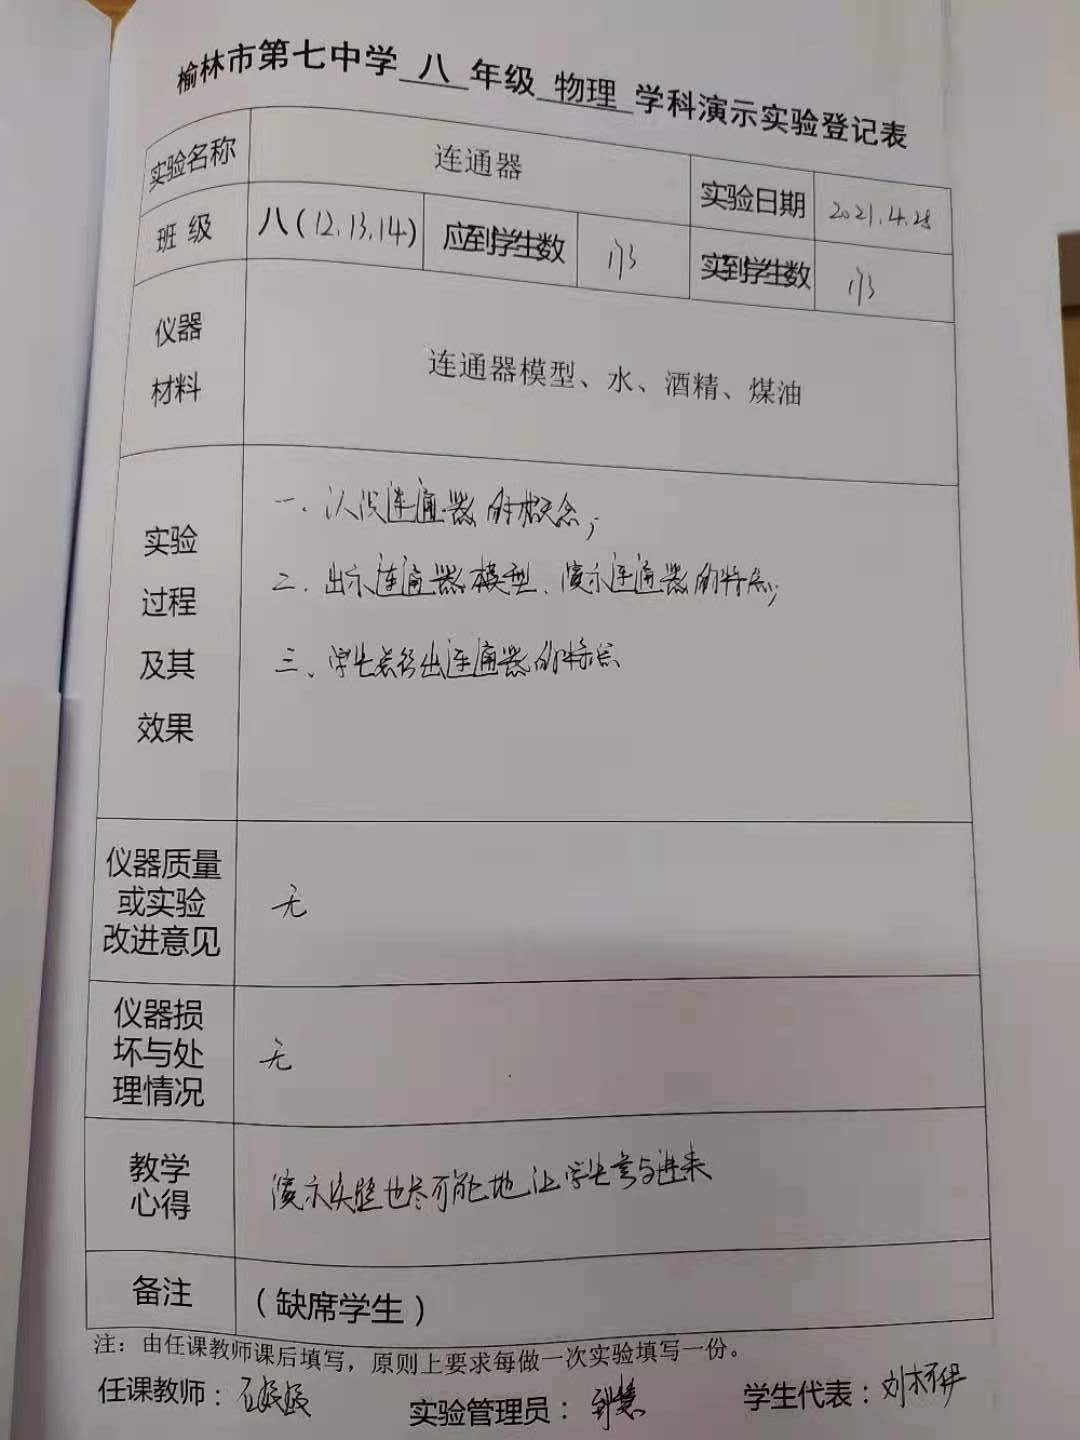 榆林市第七中学 八 年级 物理 学科演示实验登记表
实验名称 连通器 实验日期 2021.4.28
班 级 八(12.13.14) 应到学生数 实到学生数
仪器
材料
连通器模型、水、酒精、煤油
实验
过程
及其
效果
一.认识连通器的概念;
二.出示连通器模型、演示连通器的特点;
三、学生总结出连通器的特点
仪器质量
或实验
改进意见
无
仪器损
坏与处
理情况
无
教学
心得
演示实验也尽可能地让学生参与进来
备注 (缺席学生)
注:由任课教师课后填写,原则上要求每做一次实验填写一份。
任课教师: 实验管理员: 学生代表: